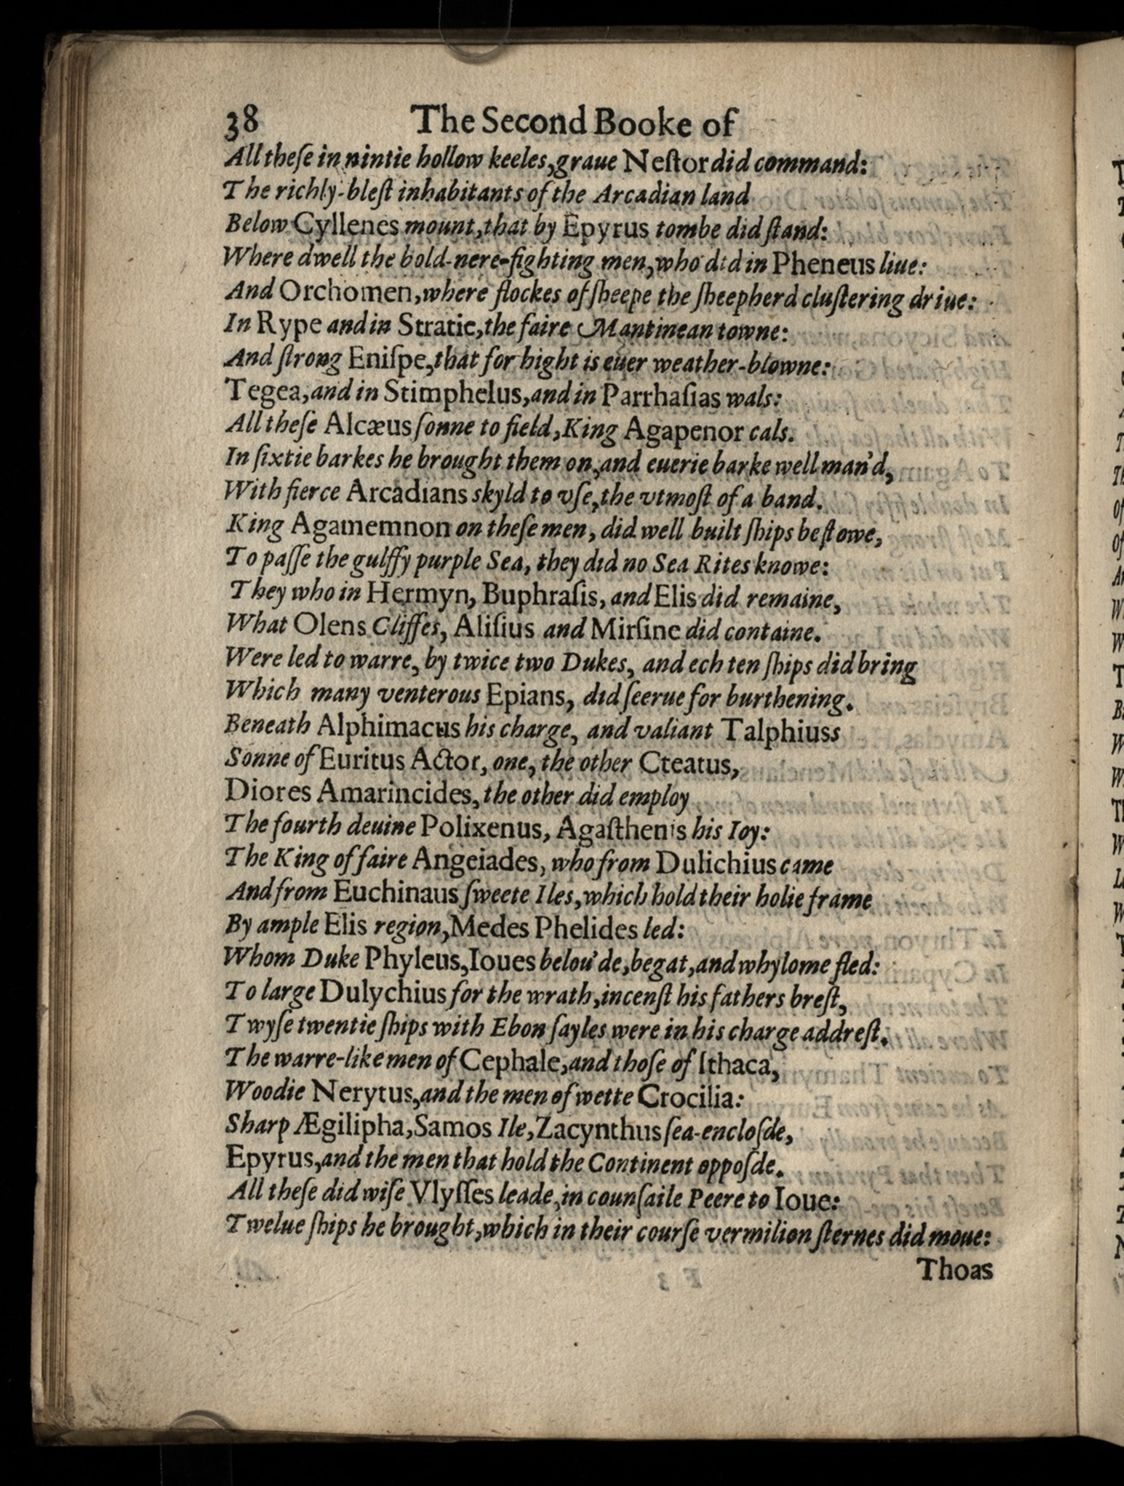 38 The Second Booke of
All theſe in nintie hollow keeles,graue Neſtor did command:
The richly-bleſt inhabitants of the Arcadian land
Below Cyllenes mount,that by Epyrus tombe did ſtand:
Where dwell the bold-nere-fighting men,who did in Pheneus liue:
And Orchomen,where flockes of ſheepe the ſheepherd cluſtering driue:
In Rype and in Stratie,the faire Mantinean towne:
And ſtrong Eniſpe,that for hight is euer weather-blowne:
Tegea,and in Stimphelus,and in Parrhaſias wals:
All theſe Alcæus ſonne to field,King Agapenor cals.
In ſixtie barkes he brought them on,and euerie barke well man'd,
With fierce Arcadians skyld to vſe,the vtmoſt of a band.
King Agamemnon on theſe men, did well built ſhips beſtowe,
To paſſe the gulffy purple Sea, they did no Sea Rites knowe:
They who in Hermyn, Buphraſis, and Elis did remaine,
What Olens Cliffes, Aliſius and Mirſine did containe.
Were led to warre, by twice two Dukes, and ech ten ſhips did bring
Which many venterous Epians, did ſeerue for burthening.
Beneath Alphimacus his charge, and valiant Talphiuss
Sonne of Euritus Actor, one, the other Cteatus,
Diores Amarincides, the other did employ
The fourth deuine Polixenus, Agaſthenis his Ioy:
The King of faire Angeiades, who from Dulichius came
And from Euchinaus ſweete Iles,which hold their holie frame
By ample Elis region,Medes Phelides led:
Whom Duke Phyleus,Ioues belou'de,begat,and whylome fled:
To large Dulychius for the wrath,incenſt his fathers breſt,
Twyſe twentie ſhips with Ebon ſayles were in his charge addreſt.
The warre-like men of Cephale,and thoſe of Ithaca,
Woodie Nerytus,and the men of wette Crocilia:
Sharp Ægilipha,Samos Ile,Zacynthus ſea-encloſde,
Epyrus,and the men that hold the Continent oppoſde.
All theſe did wiſe Vlyſſes leade,in counſaile Peere to Ioue:
Twelue ſhips he brought,which in their courſe vermilion ſternes did moue:
Thoas